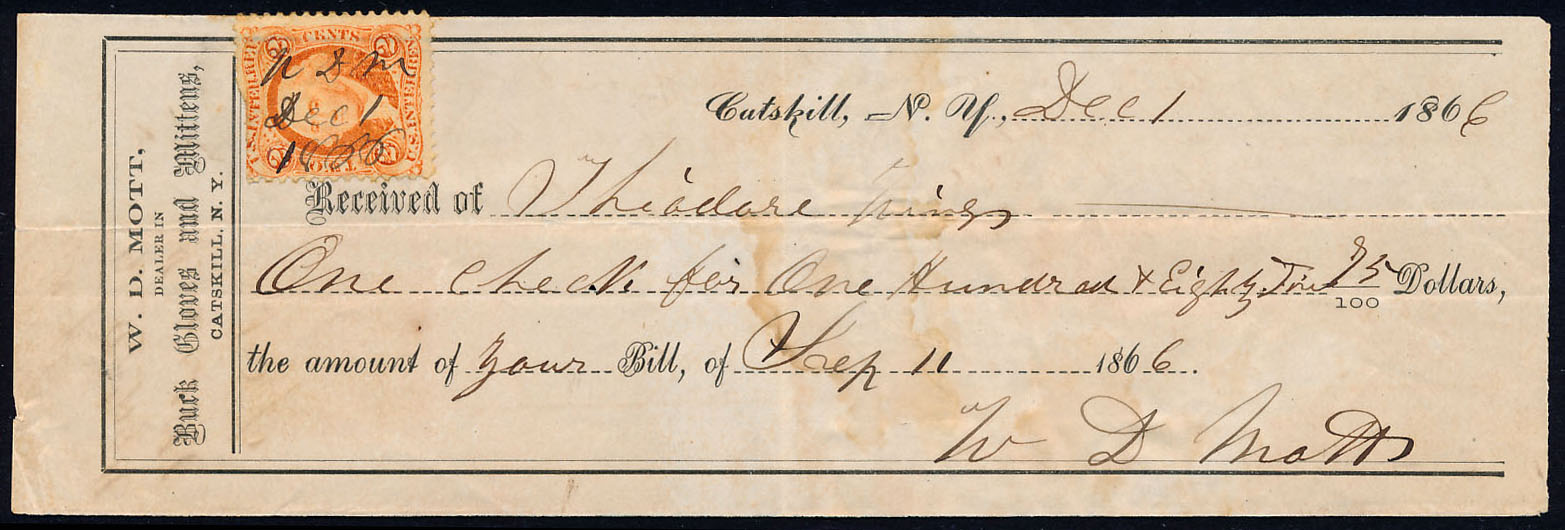 W. D. MOTT,
DEALER IN
Buck Gloves and Mittens,
CATSKILL, N. Y.
U.S. INTER. REV.
2 CENTS 2
U.S. INTER. REV.
2 2
W D M
Dec 1
1866
Catskill, N. Y., Dec 1 1866
Received of Theodore
One check for One Hundred & Eighty 75/100 Dollars,
the amount of your Bill, of Sep 11 1866.
W D Mott